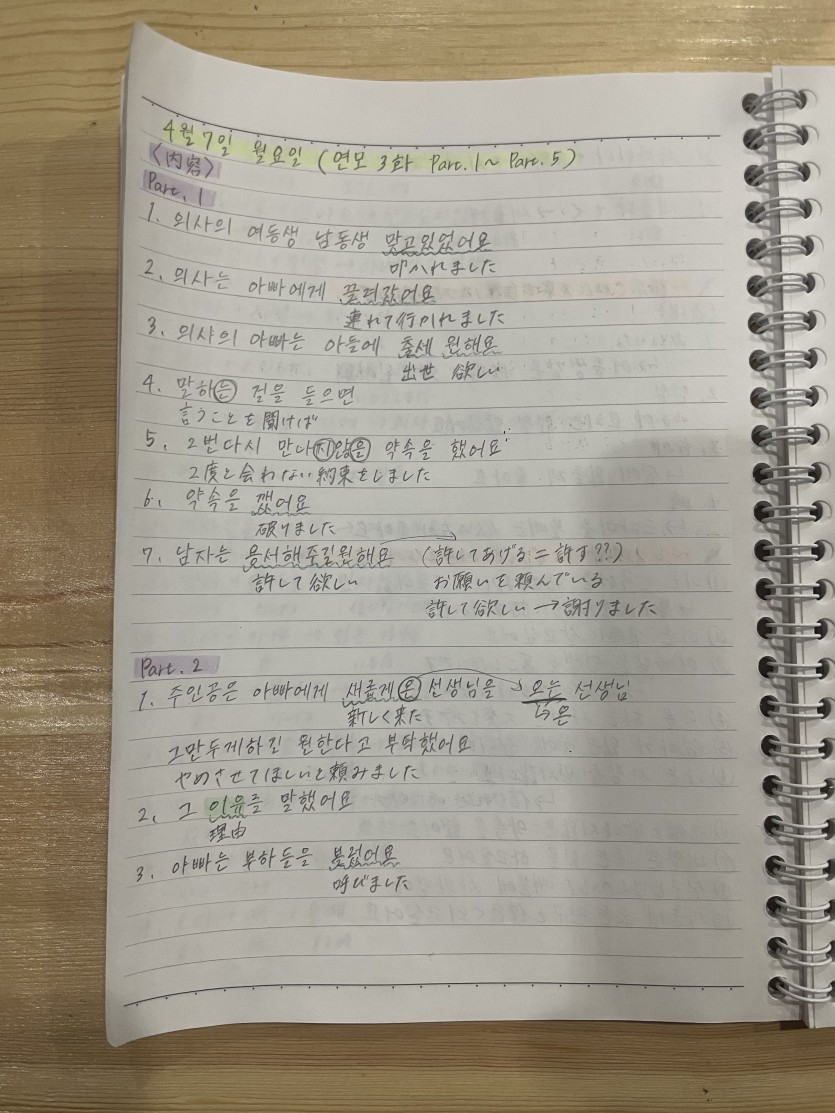 4월 7일 월요일 (연모 3화 Part.1 ~ Part.5)
〈内容〉
Part.1
1. 의사의 여동생 남동생 맞고있었어요
叩かれました
2. 의사는 아빠에게 끌려갔어요
連れて行かれました
3. 의사의 아빠는 아들에 출세 원해요
出世 欲しい
4. 말하는 걸을 들으면
言うことを聞けば
5. 2번다시 만나지않을 약속을 했어요
2度と会わない約束をしました
6. 약속을 깼어요
破りました
7. 남자는 용서해주길원해요 (許してあげる=許す??)
許して欲しい お願いを頼んでいる
許して欲しい→謝りました
Part.2
1. 주인공은 아빠에게 새롭게 온 선생님을 → 오는 선생님
新しく来た 온
그만두게하길 원한다고 부탁했어요
やめさせてほしいと頼みました
2. 그 이유를 말했어요
理由
3. 아빠는 부하들을 불렀어요
呼びました